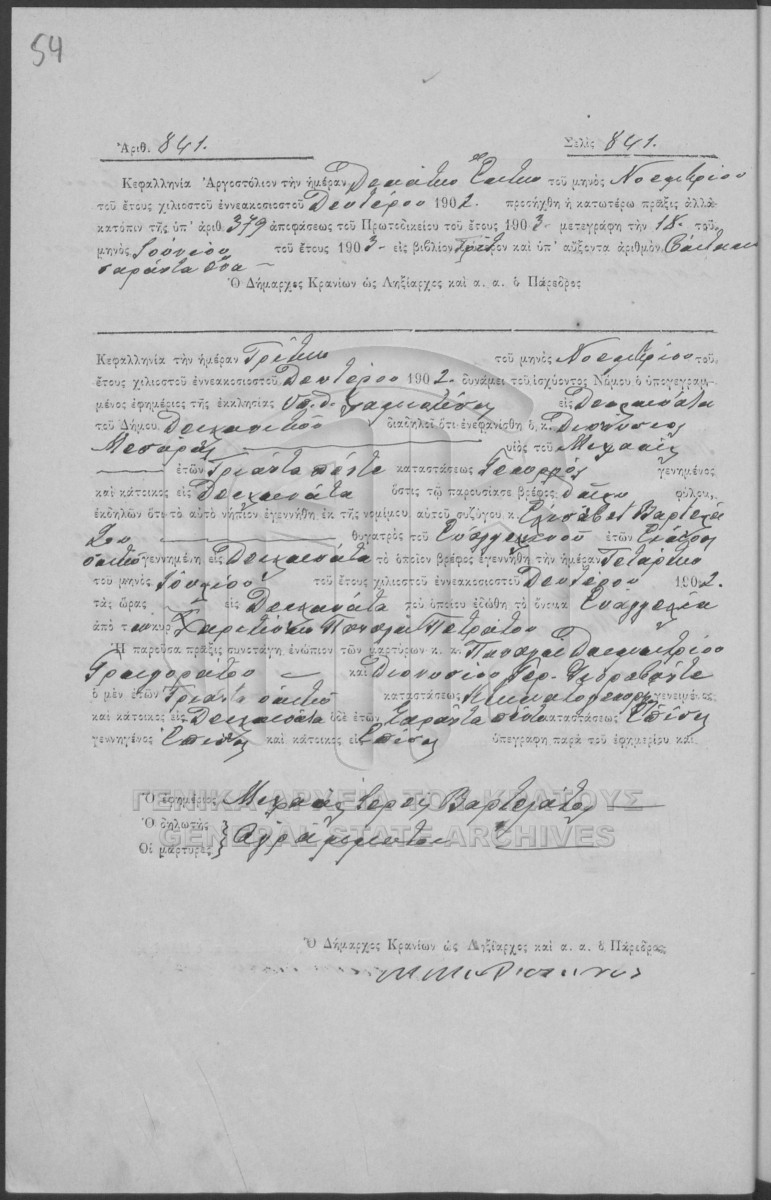 54
Ἀριθ. 841. Σελὶς 841.
Κεφαλληνία Ἀργοστόλιον τὴν ἡμέραν Δεκάτην Ἕκτην τοῦ μηνὸς Νοεμβρίου
τοῦ ἔτους χιλιοστοῦ ἐννεακοσιοστοῦ Δευτέρου 1902. προσήχθη ἡ κατωτέρω πρᾶξις ἀλλὰ
κατόπιν τῆς ὑπ' ἀριθ. 379 ἀποφάσεως τοῦ Πρωτοδικείου τοῦ ἔτους 1903 μετεγράφη τὴν 18. τοῦ
μηνὸς Ἰουνίου τοῦ ἔτους 1903 εἰς βιβλίον καὶ ὑπ' αὔξοντα ἀριθμὸν
σαράντα ἕνα
Ὁ Δήμαρχος Κρανίων ὡς Ληξίαρχος καὶ α. α. ὁ Πάρεδρος
Κεφαλληνία τὴν ἡμέραν Τρίτην τοῦ μηνὸς Νοεμβρίου τοῦ
ἔτους χιλιοστοῦ ἐννεακοσιοστοῦ Δευτέρου 1902. δυνάμει τοῦ ἰσχύοντος Νόμου ὁ ὑπογεγραμ-
μένος ἐφημέριος τῆς ἐκκλησίας εἰς
τοῦ Δήμου διαδηλοῖ ὅτι ἐνεφανίσθη ὁ κ. Διονύσιος
υἱὸς τοῦ Μιχαὴλ
ἐτῶν Τριάντα πέντε καταστάσεως Γεωργὸς γενημένος
καὶ κάτοικος εἰς ὅστις τῷ παρουσίασε βρέφος θῆλυ φύλου,
ἐκδηλῶν ὅτι τὸ αὐτὸ νήπιον ἐγεννήθη ἐκ τῆς νομίμου αὐτοῦ συζύγου κ. Ἐλισάβετ
θυγατρὸς τοῦ Εὐαγγελινοῦ ἐτῶν Εἴκοσι
γεννημένη εἰς τὸ ὁποῖον βρέφος ἐγεννήθη τὴν ἡμέραν Τετάρτην
τοῦ μηνὸς Ἰουλίου τοῦ ἔτους χιλιοστοῦ ἐννεακοσιοστοῦ Δευτέρου 1902.
τὰς ὥρας εἰς τοῦ ὁποίου ἐδώθη τὸ ὄνομα Εὐαγγελία
ἀπὸ τ
Ἡ παροῦσα πρᾶξις συνετάγη ἐνώπιον τῶν μαρτύρων κ. κ. Παναγῆ
Γρηγοράτου καὶ Διονυσίου Γερ.
ὁ μὲν ἐτῶν Τριάντα ὀκτὼ καταστάσεως Κτηματογεωργὸς γενειμένος
καὶ κάτοικος εἰς ὁ δὲ ἐτῶν Σαράντα πέντε καταστάσεως Ἐπίσης
γεννηγένος Ἐπίσης καὶ κάτοικος εἰς Ἐπίσης ὑπεγράφη παρὰ τοῦ ἐφημερίου καὶ
Ὁ ἐφημέριος Μιχαὴλ Ἱερεὺς Βαρτολάτος
Ὁ δηλωτὴς
Οἱ μάρτυρες } Ἀγράμματοι
ΓΕΝΙΚΑ ΑΡΧΕΙΑ ΤΟΥ ΚΡΑΤΟΥΣ
GENERAL STATE ARCHIVES
Ὁ Δήμαρχος Κρανίων ὡς Ληξίαρχος καὶ α. α. ὁ Πάρεδρος